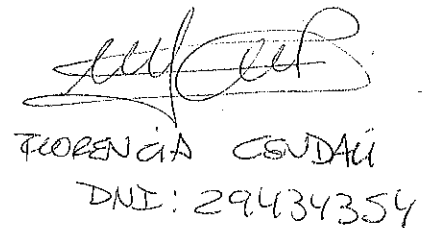 FLORENCIA CENDALI
DNI: 29.434354